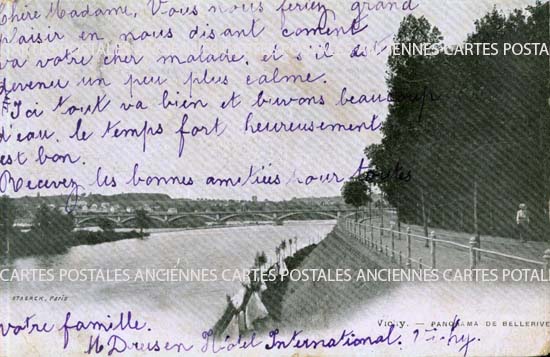 Chère Madame, Vous nous feriez grand
plaisir en nous disant coment
va votre cher malade, et s'il est
devenu un peu plus calme.
Ici tout va bien et buvons beaucoup
d'eau, le temps fort heureusement
est bon.
Recevez les bonnes amitiés pour toutes
CARTES POSTALES ANCIENNES CARTES POSTALES
CARTES POSTALES ANCIÉNNES CARTES POSTALES ANCIENNES CARTES POSTALES
STRBACK, Paris
VICHY. — PANORAMA DE BELLERIVE
votre famille.
M Dreisen Hôtel International. Vichy.